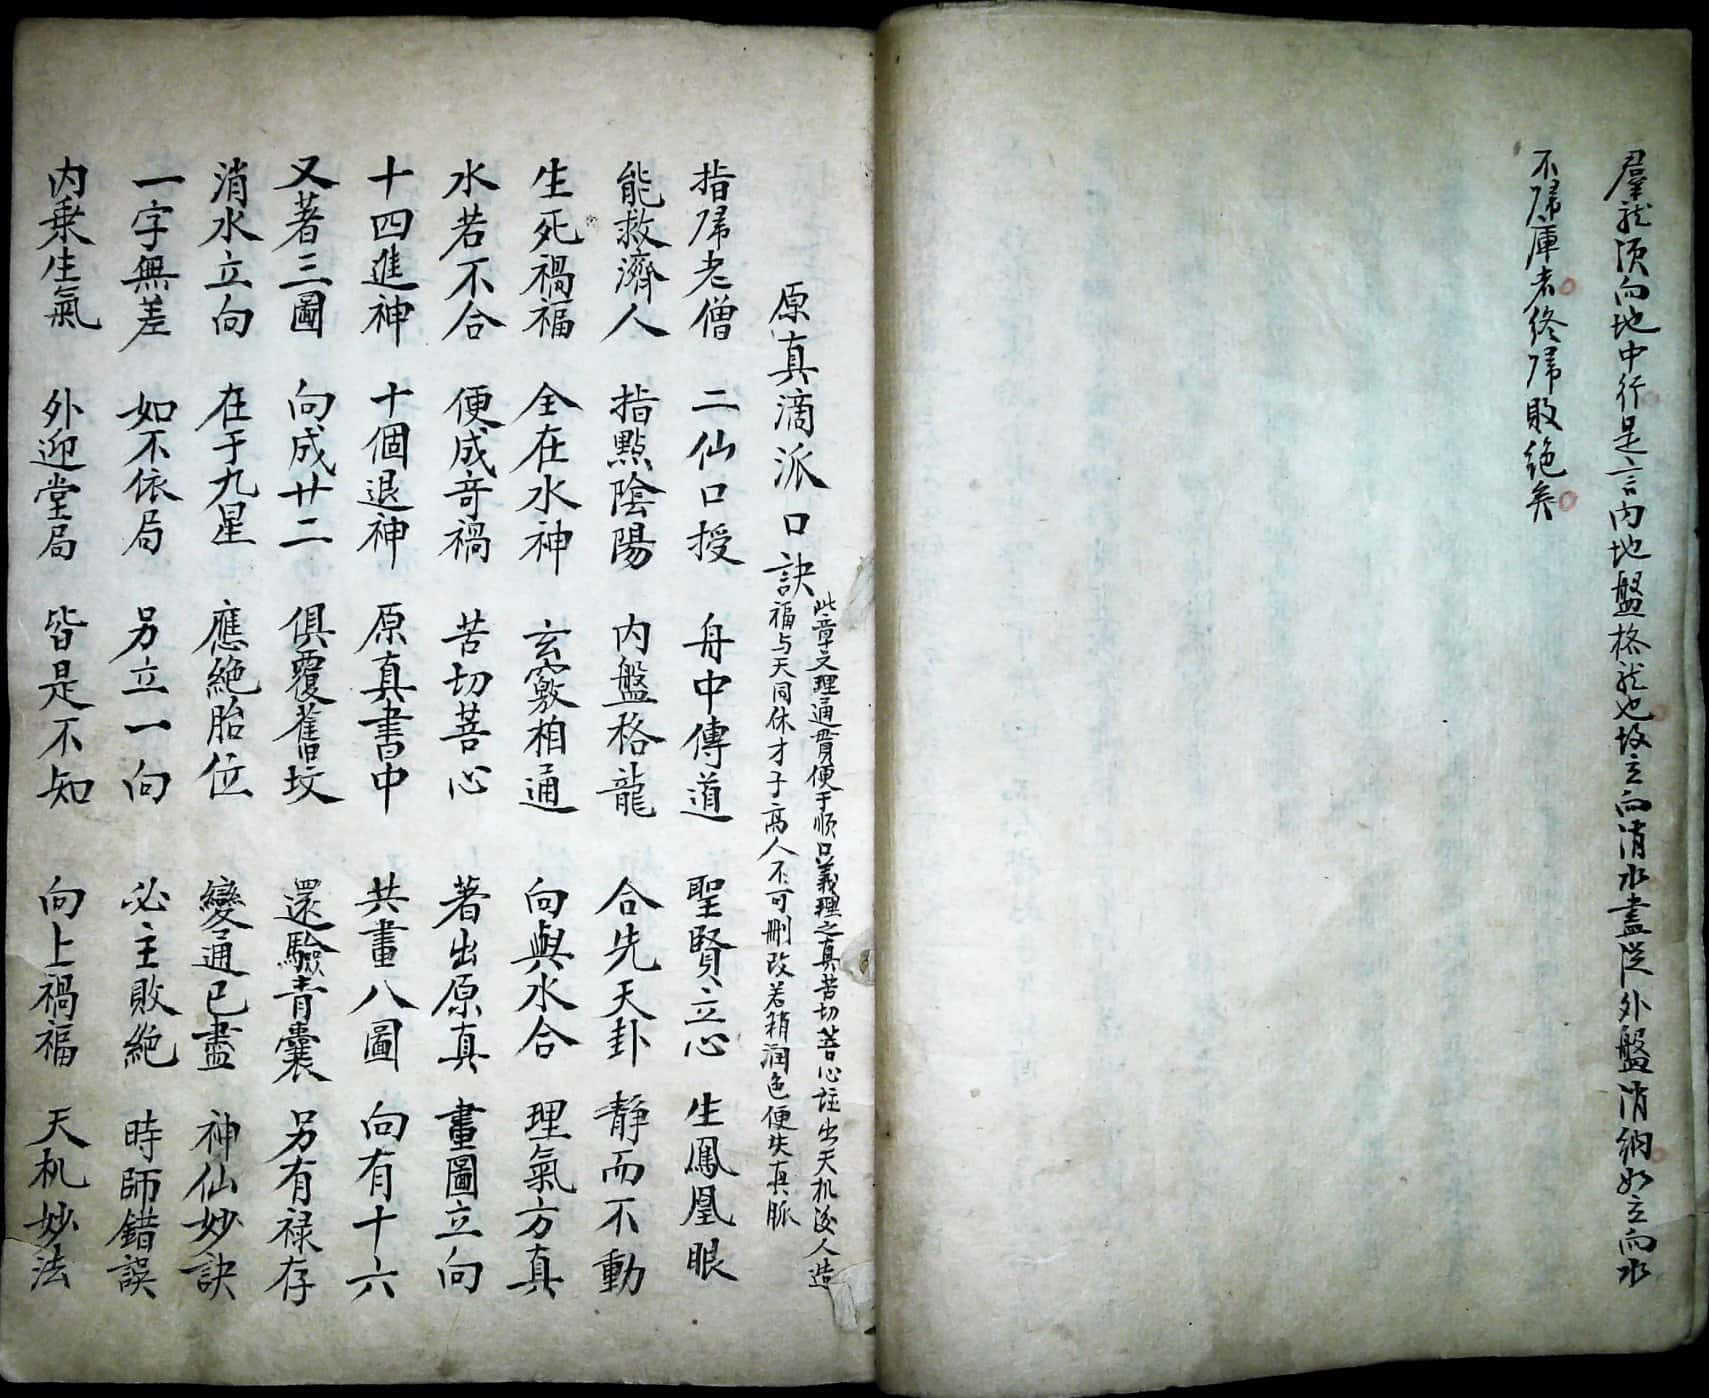 羣龍須向地中行是言內地盤格龍也故立向消水盡從外盤消納如立向水
不歸庫者終歸敗絕矣
原真滴派口訣
此章文理通貫便于順口義理之真苦切菩心註出天机後人造
福与天同休才子高人不可刪改若稍潤色便失真脈
指歸老僧 二仙口授 舟中傳道 聖賢立心 生鳳凰眼
能救濟人 指點陰陽 內盤格龍 合先天卦 靜而不動
生死禍福 全在水神 玄竅相通 向與水合 理氣方真
水若不合 便成奇禍 苦切菩心 著出原真 畫圖立向
十四進神 十個退神 原真書中 共畫八圖 向有十六
又著三圖 向成廿二 俱覆舊坟 還驗青囊 另有祿存
消水立向 在于九星 應絕胎位 變通已盡 神仙妙訣
一字無差 如不依局 另立一向 必主敗絕 時師錯誤
內乗生氣 外迎堂局 皆是不知 向上禍福 天机妙法